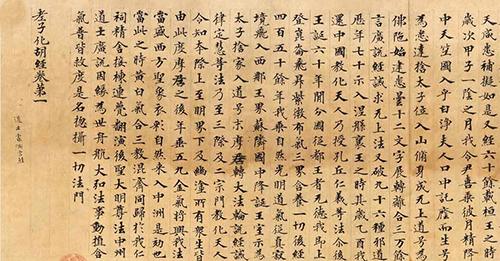 天威愍補擬如是又經六十餘載桓王之時
歲次甲子一陰之月我令尹喜乘彼月精降
中天竺國入乎白淨夫人口中託蔭而生号
為悉達捨太子位入山脩道成无上道号為
佛陁始建悉曇十二文字展轉離合三万餘
言廣說經誡求无上法又破九十六種邪道
歷年七十示入涅槃襄王之時其歲乙酉我
還中國教化天人乃授孔丘仁義等法尒後
王誕六十年間分國從都王者无德我即上
登崑崙飛昇紫微布氣三界含養一切後經
四百五十餘年我乘自然光明道氣從真寂
境飛入西那玉界蘇隣國中降誕王室示為
太子捨家入道号末摩尼轉大法輪說經誡
律定慧等法乃至三際及二宗門教化天人
令知本際上至明界下及幽塗所有眾生皆
由此度摩尼之後年垂五九金氣將興我法
當盛西方聖象衣彩自然來入中洲是効也
當此之時黃白氣合三教混齊同歸於我仁
祠精舍接棟連甍翻演後聖大明尊法中州
道士廣說因緣為世舟航大弘法事動植含
氣普皆救度是名揔攝一切法門
老子化胡經卷第一
道士索洞玄經